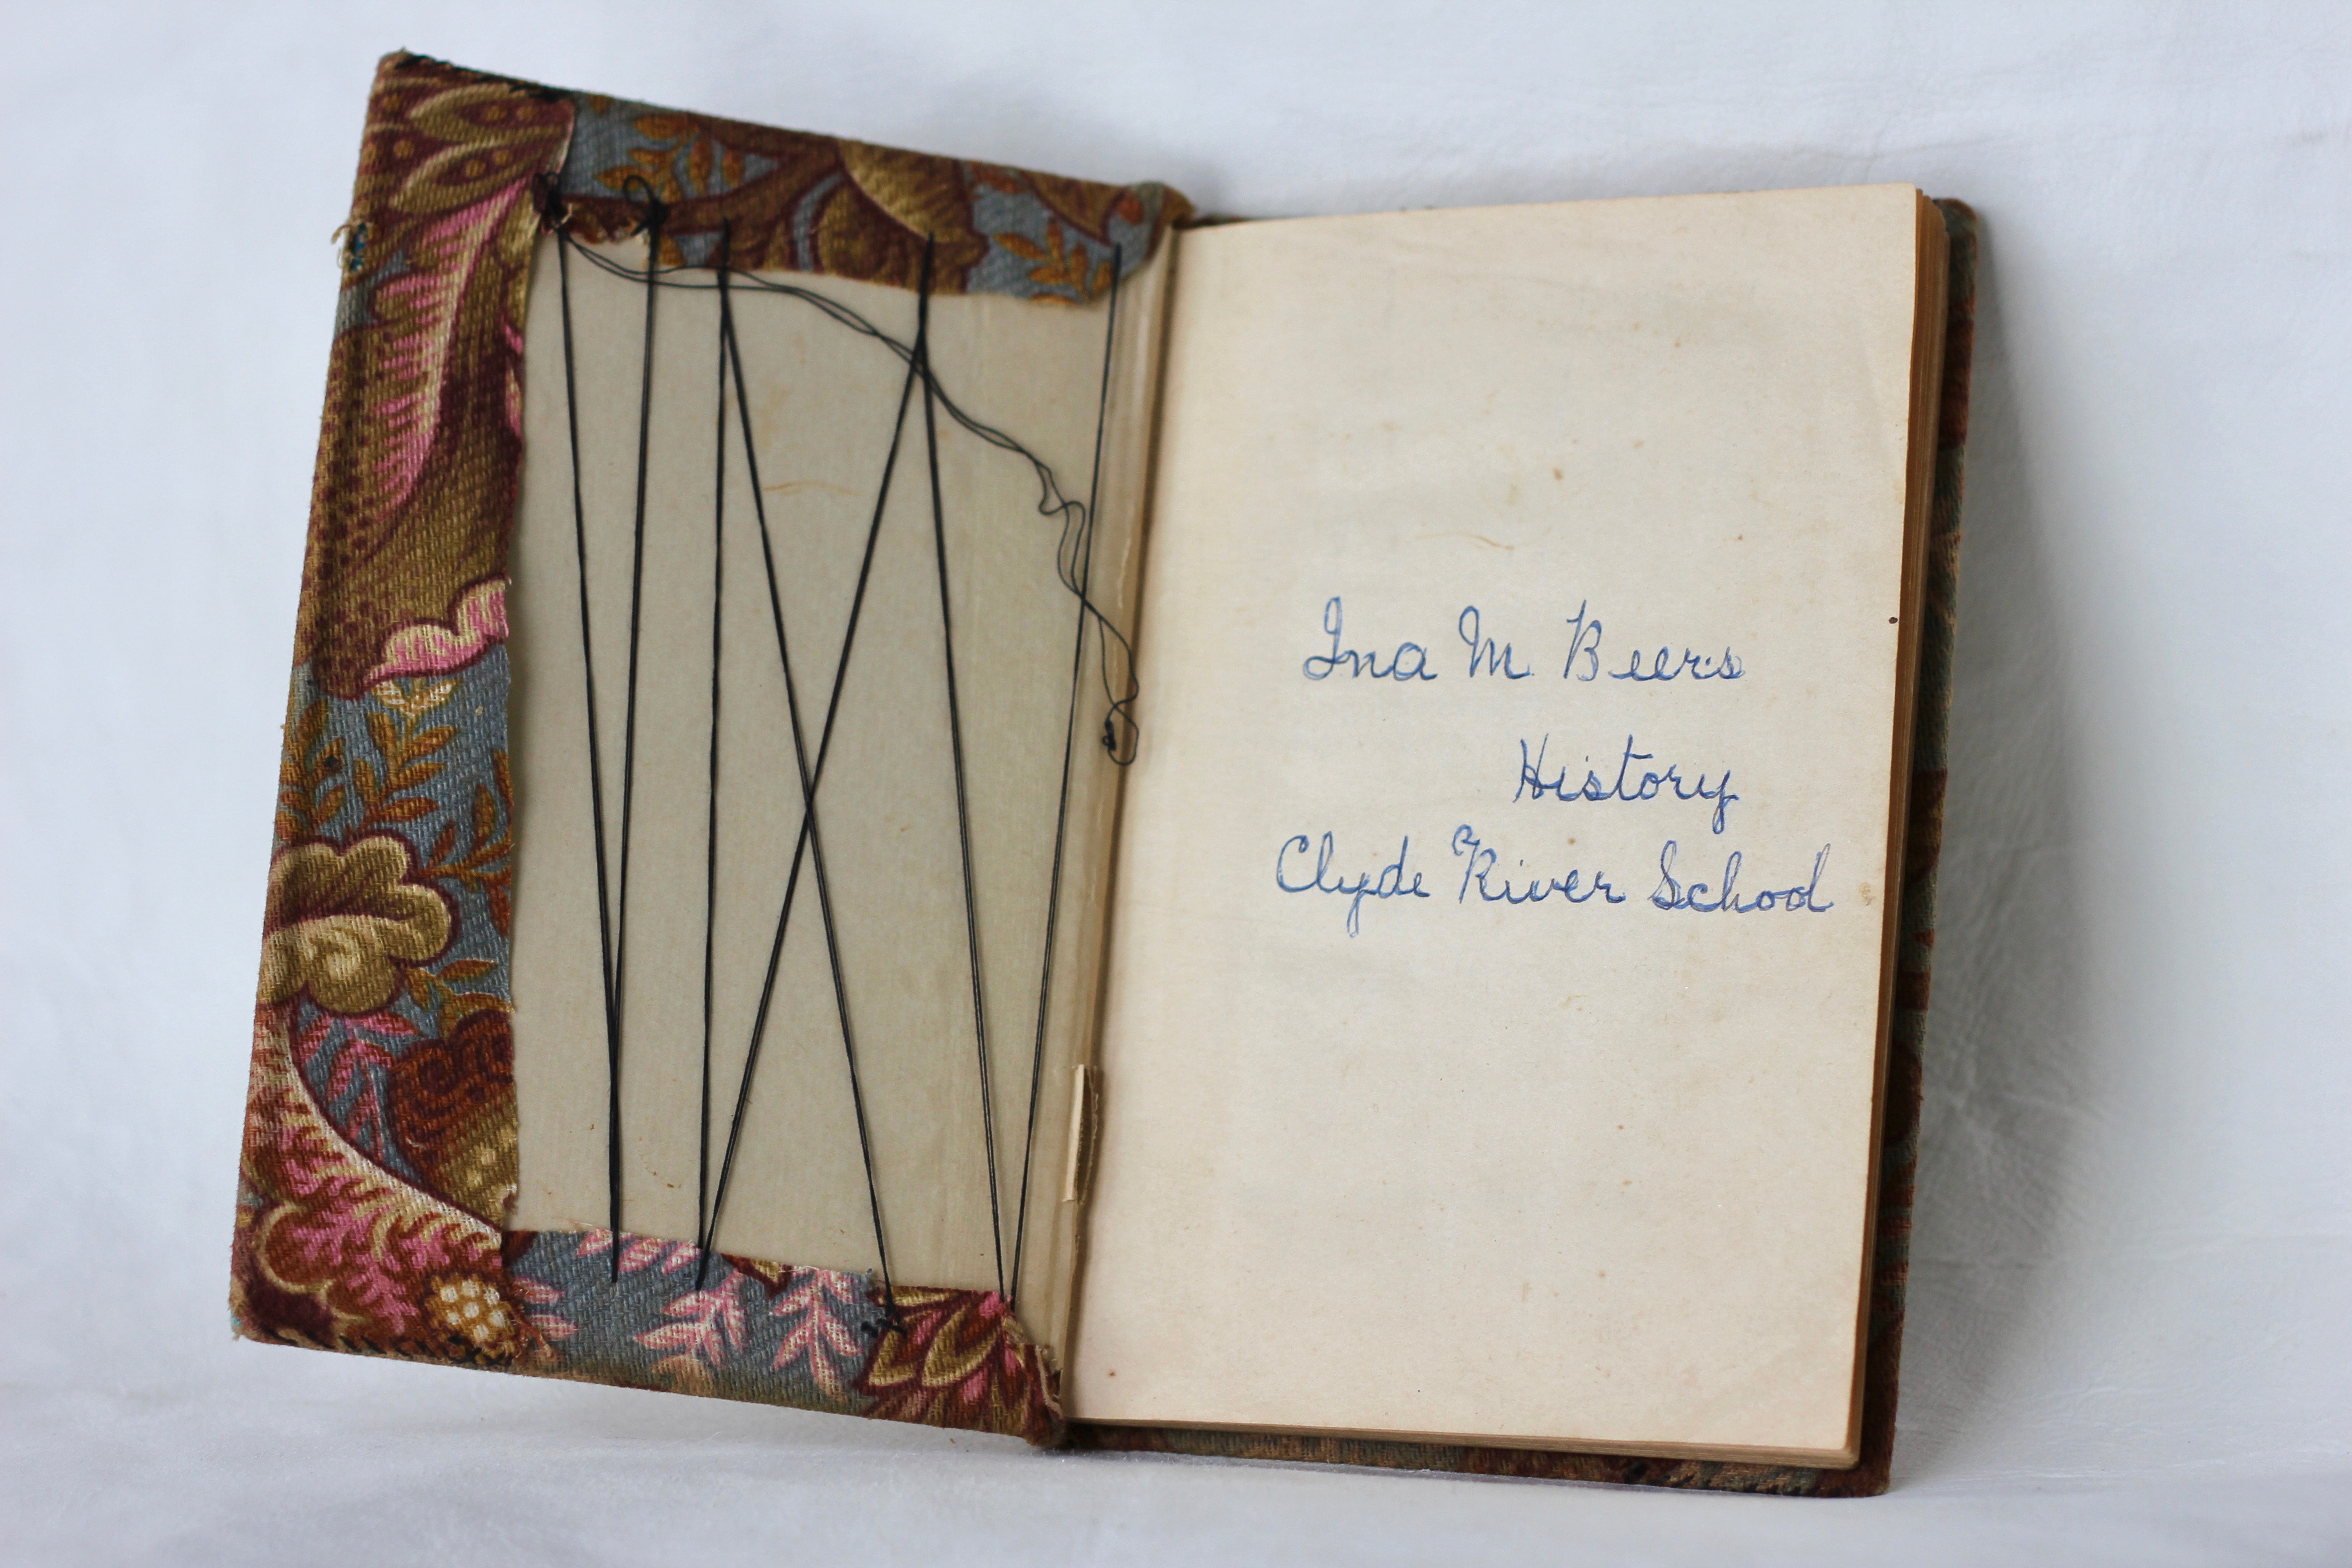 Ina M Beers
History
Clyde River School